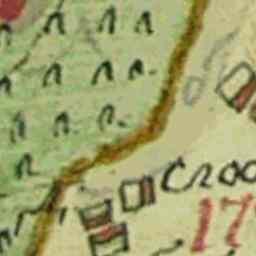 Croo
17